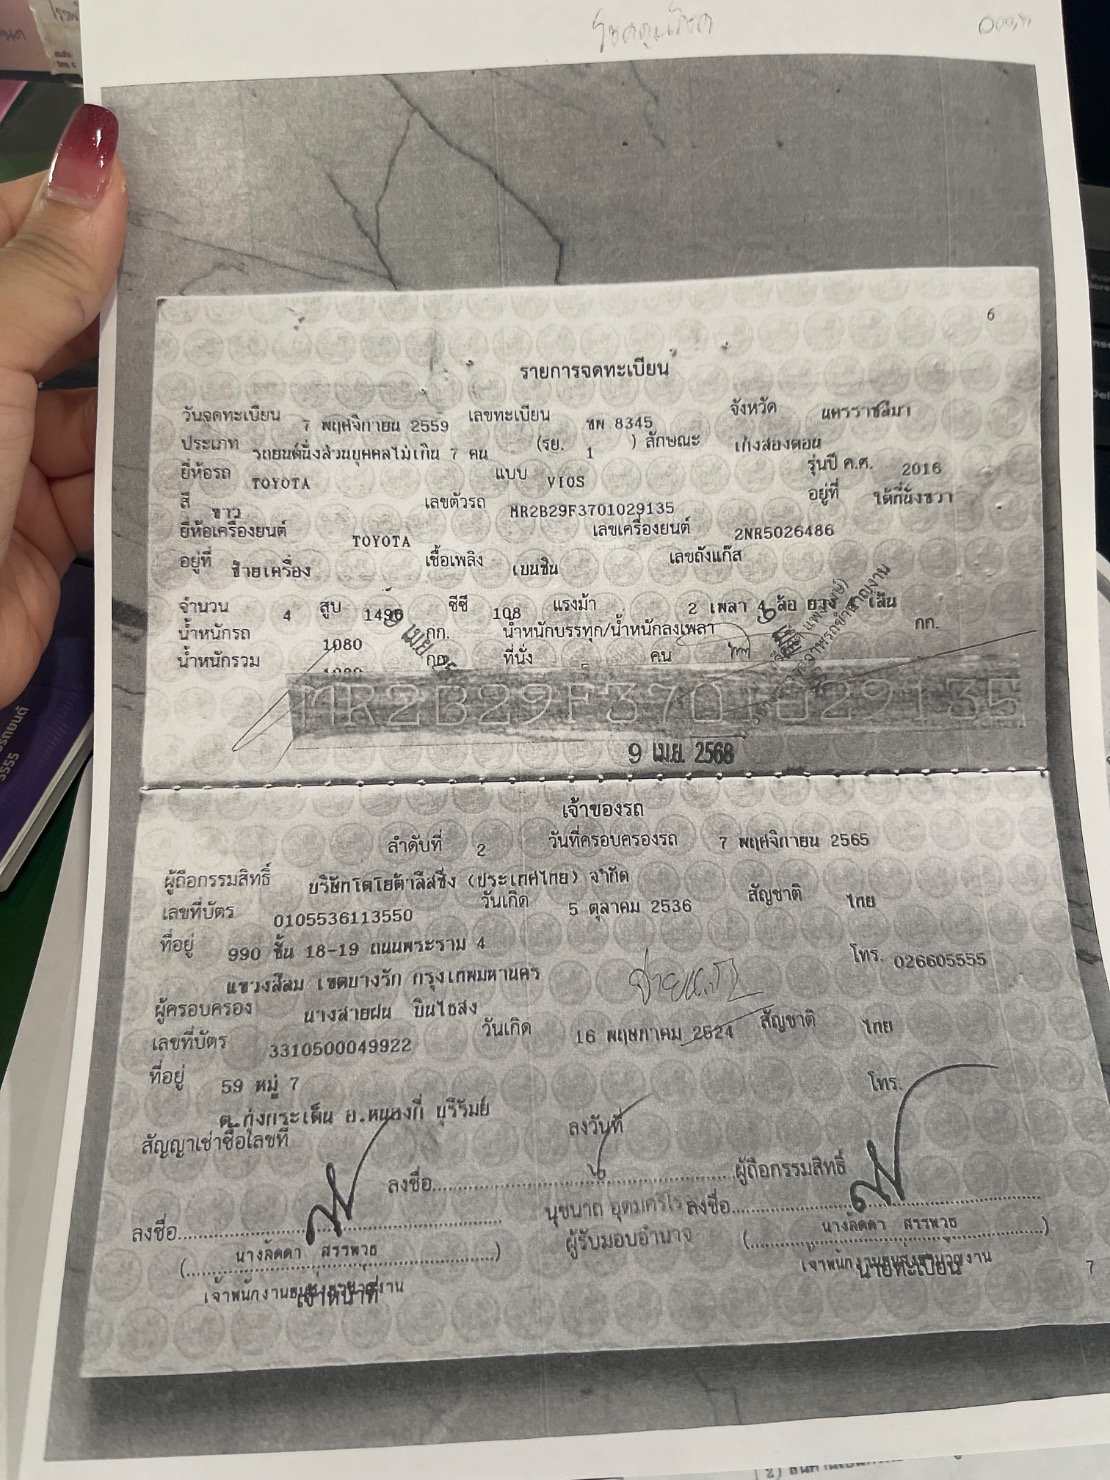 โชคคูณโชค
6
รายการจดทะเบียน
วันจดทะเบียน 7 พฤศจิกายน 2559 เลขทะเบียน ชพ 8345 จังหวัด นครราชสีมา
ประเภท รถยนต์นั่งส่วนบุคคลไม่เกิน 7 คน (รย. 1 ) ลักษณะ เก๋งสองตอน
ยี่ห้อรถ TOYOTA แบบ VIOS รุ่นปี ค.ศ. 2016
สี ขาว เลขตัวรถ MR2B29F3701029135 อยู่ที่ ใต้ที่นั่งขวา
ยี่ห้อเครื่องยนต์ TOYOTA เลขเครื่องยนต์ 2NR5026486
อยู่ที่ ซ้ายเครื่อง เชื้อเพลิง เบนซิน เลขถังแก๊ส
จำนวน 4 สูบ 1496 ซีซี 108 แรงม้า 2 เพลา 4 ล้อ ยาง เส้น
น้ำหนักรถ 1080 กก. น้ำหนักบรรทุก/น้ำหนักลงเพลา กก.
น้ำหนักรวม 1080 กก. ที่นั่ง คน
MR2B29F3701029135
9 เม.ย. 2568
เจ้าของรถ
ลำดับที่ 2 วันที่ครอบครองรถ 7 พฤศจิกายน 2565
ผู้ถือกรรมสิทธิ์ บริษัทโตโยต้าลีสซิ่ง (ประเทศไทย) จำกัด
เลขที่บัตร 0105536113550 วันเกิด 5 ตุลาคม 2536 สัญชาติ ไทย
ที่อยู่ 990 ชั้น 18-19 ถนนพระราม 4 โทร. 026605555
แขวงสีลม เขตบางรัก กรุงเทพมหานคร
ผู้ครอบครอง นางสายฝน บินไธสง
เลขที่บัตร 3310500049922 วันเกิด 16 พฤษภาคม 2524 สัญชาติ ไทย
ที่อยู่ 59 หมู่ 7 โทร.
ต.ทุ่งกระเต็น อ.หนองกี่ บุรีรัมย์
สัญญาเช่าซื้อเลขที่ ลงวันที่
ลงชื่อ ผู้ถือกรรมสิทธิ์
ลงชื่อ นุชนาถ ลงชื่อ
ผู้รับมอบอำนาจ
( นางลัดดา สรรพวุธ ) ( นางลัดดา สรรพวุธ )
เจ้าหน้าที่ นายทะเบียน
7